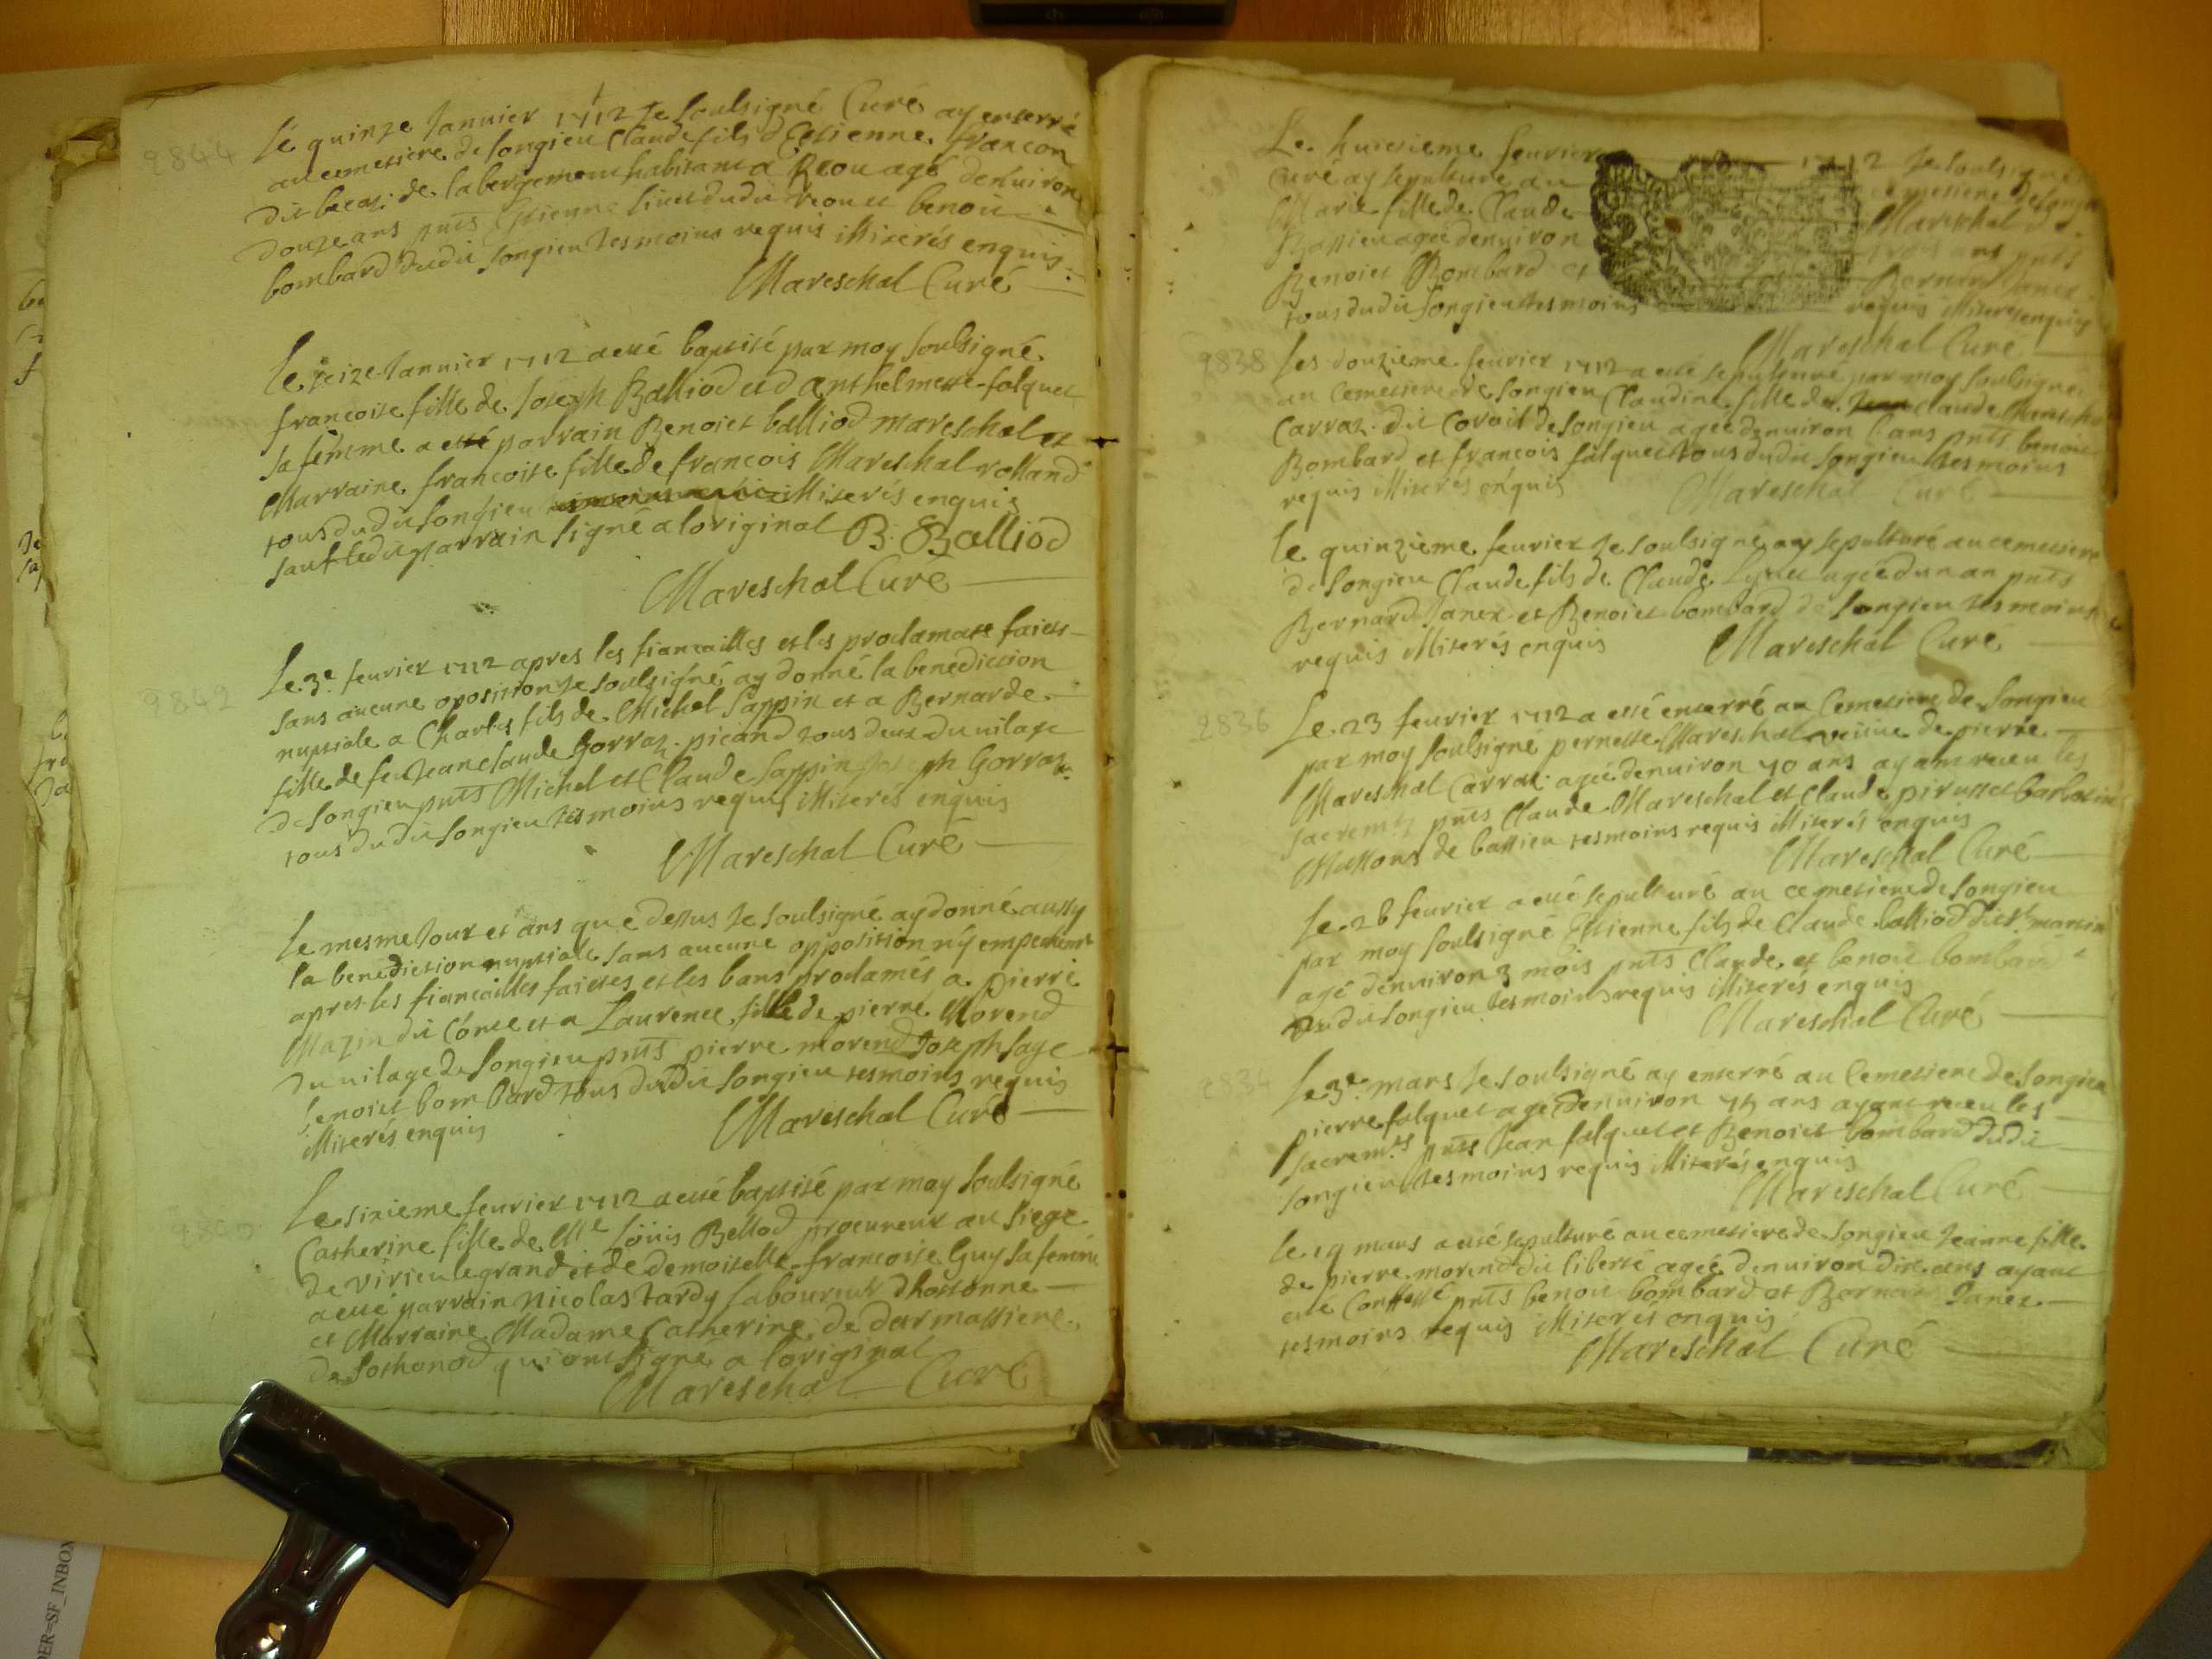 2844
le quinze Januier 1712 Je soulsigné Curé ay enterré
au cemetiere de songieu Claude fils d'Estienne francon
dit becaz de labergement habitant a Reou agé denuiron
douze ans pnts Estienne liuet dudit reou et benoit
bombard dudit songieu tesmoins requis illiterés enquis
Mareschal Curé
le seize Januier 1712 a esté baptisé par moy soulsigné
francoise fille de Joseph Balliod et d anthelmette falquet
sa femme a esté parrain Benoict balliod mareschal et
Marraine francoise fille de francois Mareschal rolland
tous dudit songieu illiterés enquis
sauf ledit parrain signé a loriginal B. Balliod
Mareschal Curé
2842
Le 3e feurier 1712 apres les fiancailles et les proclamats faicts
sans aucune oposition Je soulsigné ay donné la benediction
nuptiale a Charles fils de Michel Sappin et a Bernarde
fille de feu Jean claude Gorraz picand tous deux du vilage
de songieu pnts Michel et Claude Sappin Joseph Gorraz
tous dudit songieu tesmoins requis illiterés enquis
Mareschal Curé
le mesme Jour et ans que dessus Je soulsigné ay donné aussy
la benediction nuptiale sans aucune opposition ny empechemt
apres les fiancailles faictes et les bans proclamés a pierre
Mazin dit Cónte et a Laurence fille de pierre Morend
du vilage de songieu pnts pierre morend Joseph sage
benoict bombard tous dudit songieu tesmoins requis
illiterés enquis
Mareschal Curé
Le sixieme feurier 1712 a esté baptisé par moy soulsigné
Catherine fille de Me loüis Bellod procureur au siege
de virieu le grand et de demoiselle francoise Guy sa femme
a esté parrain Nicolas tardy laboureur dhostonne
et Marraine Madame Catherine de darmassiere
de Sothonod qui ont signé a loriginal
Mareschal Curé
Le huictieme feurier 1712 Je soulsigné
Curé ay sepulturé au cemetiere de songieu
Marie fille de Claude Mareschal
agée denuiron trois ans pnts
Benoict Bombard et Bernard Janex
tous dudit songieu tesmoins requis illiterés enquis
Mareschal Curé
2838
Les douzieme feurier 1712 a esté sepulturé par moy soulsigné
au Cemetiere de songieu Claudine fille de Claude
Carraz dit Coroil de songieu agée denuiron ans pnts benoict
Bombard et francois falquet tous dudit songieu tesmoins
requis illiterés enquis
Mareschal Curé
le quinzieme feurier Je soulsigné ay sepulturé au cemetiere
de songieu Claude fils de Claude Lyuet agée dun an pnts
Bernard Janex et Benoict bombard de songieu tesmoins
requis illiterés enquis Mareschal Curé
2836
Le 23 feurier 1712 a esté enterré au Cemetiere de songieu
par moy soulsigné pernette Mareschal veüue de pierre
Mareschal Carraz agée denuiron 70 ans ayant receu les
sacremts pnts Claude Mareschal et Claude
Massons de bassieu tesmoins requis illiterés enquis
Mareschal Curé
Le 26 feurier a esté sepulturé au cemetiere de songieu
par moy soulsigné Estienne fils de Claude balliod dit St martin
agé denuiron 3 mois pnts Claude et benoit bombard
dudit songieu tesmoins requis illiterés enquis
Mareschal Curé
2834
Le 3e mars Je soulsigné ay enterré au Cemetiere de songieu
pierre falquet agé denuiron 75 ans ayant receu les
sacremts pnts Jean falquet et Benoict bombard dudit
songieu tesmoins requis illiterés enquis
Mareschal Curé
le 19 mars a esté sepulturé au cemetiere de songieu Jeanne fille
de pierre morend dit liberté agée denuiron dix ans ayant
esté Confessé pnts benoit bombard et Bernard Janex
tesmoins requis illiterés enquis
Mareschal Curé